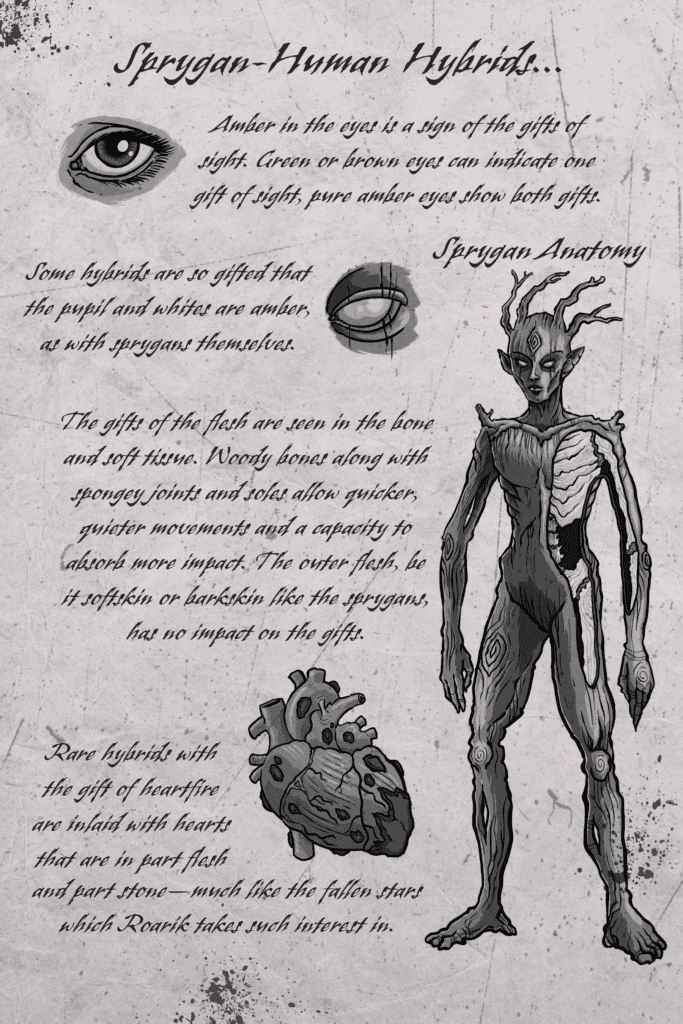 Sprygan-Human Hybrids...
Amber in the eyes is a sign of the gifts of
sight. Green or brown eyes can indicate one
gift of sight, pure amber eyes show both gifts.
Sprygan Anatomy
Some hybrids are so gifted that
the pupil and whites are amber,
as with sprygans themselves.
The gifts of the flesh are seen in the bone
and soft tissue. Woody bones along with
spongey joints and soles allow quicker,
quieter movements and a capacity to
absorb more impact. The outer flesh, be
it softskin or barkskin like the sprygans,
has no impact on the gifts.
Rare hybrids with
the gift of heartfire
are inlaid with hearts
that are in part flesh
and part stone—much like the fallen stars
which Roarik takes such interest in.